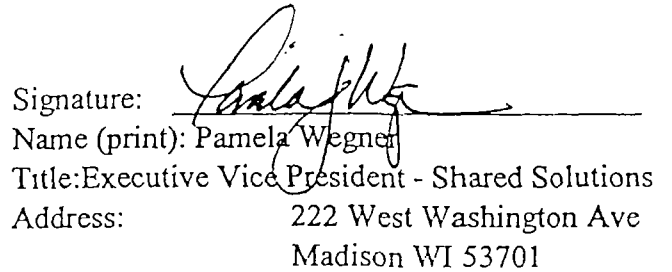 Signature: Pamela J Weg
Name (print): Pamela Wegner
Title:Executive Vice President - Shared Solutions
Address: 222 West Washington Ave
Madison WI 53701